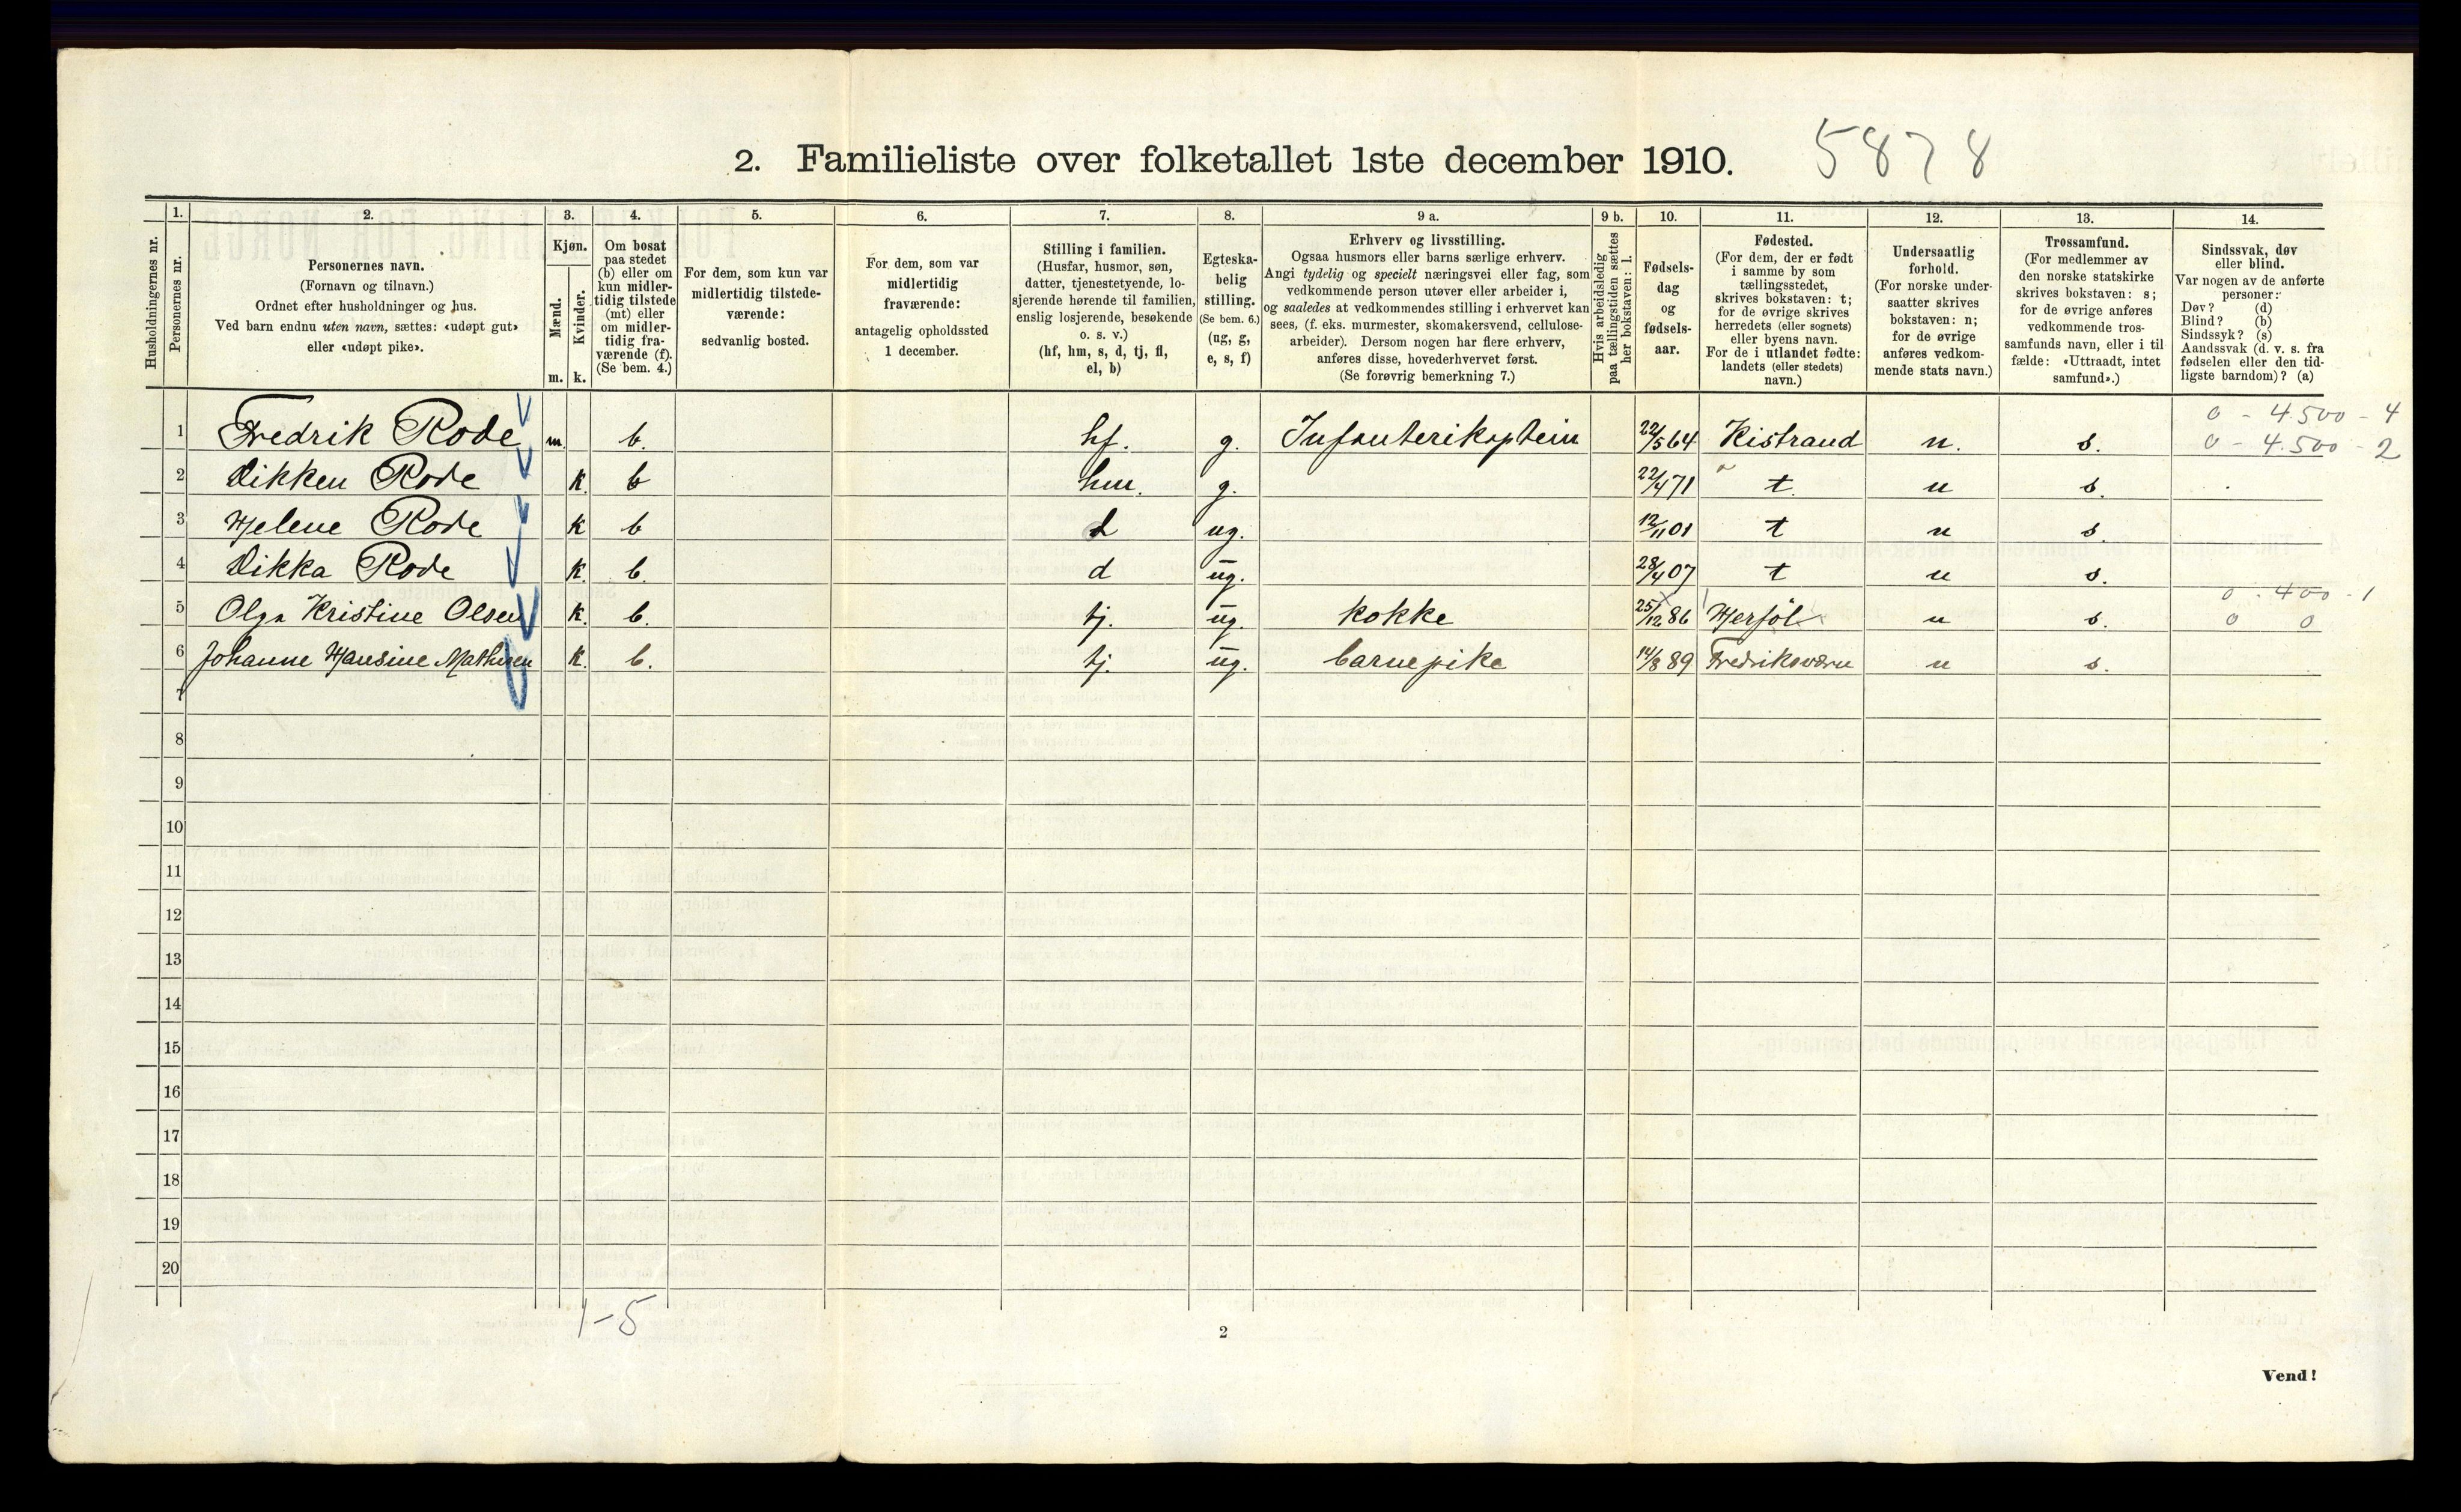 2. Familieliste over folketallet 1ste december 1910. 5878
Husholdningernes nr.
1. Personernes nr.
2. Personernes navn.
(Fornavn og tilnavn.)
Ordnet efter husholdninger og hus.
Ved barn endnu uten navn, sættes: «udøpt gut»
eller «udøpt pike».
3. Kjøn.
Mænd. m.
Kvinder. k.
4. Om bosat
paa stedet
(b) eller om
kun midler-
tidig tilstede
(mt) eller
om midler-
tidig fra-
værende (f).
(Se bem. 4.)
5. For dem, som kun var
midlertidig tilstede-
værende:
sedvanlig bosted.
6. For dem, som var
midlertidig
fraværende:
antagelig opholdssted
1 december.
7. Stilling i familien.
(Husfar, husmor, søn,
datter, tjenestetyende, lo-
sjerende hørende til familien,
enslig losjerende, besøkende
o. s. v.)
(hf, hm, s, d, tj, fl,
el, b)
8. Egteska-
belig
stilling.
(Se bem. 6.)
(ug, g,
e, s, f)
9 a. Erhverv og livsstilling.
Ogsaa husmors eller barns særlige erhverv.
Angi tydelig og specielt næringsvei eller fag, som
vedkommende person utøver eller arbeider i,
og saaledes at vedkommendes stilling i erhvervet kan
sees, (f. eks. murmester, skomakersvend, cellulose-
arbeider). Dersom nogen har flere erhverv,
anføres disse, hovederhvervet først.
(Se forøvrig bemerkning 7.)
9 b. Hvis arbeidsledig
paa tællingstiden sættes
her bokstaven: l.
10. Fødsels-
dag
og
fødsels-
aar.
11. Fødested.
(For dem, der er født
i samme by som
tællingsstedet,
skrives bokstaven: t;
for de øvrige skrives
herredets (eller sognets)
eller byens navn.
For de i utlandet fødte:
landets (eller stedets)
navn.)
12. Undersaatlig
forhold.
(For norske under-
saatter skrives
bokstaven: n;
for de øvrige
anføres vedkom-
mende stats navn.)
13. Trossamfund.
(For medlemmer av
den norske statskirke
skrives bokstaven: s;
for de øvrige anføres
vedkommende tros-
samfunds navn, eller i til
fælde: «Uttraadt, intet
samfund».)
14. Sindssvak, døv
eller blind.
Var nogen av de anførte
personer:
Døv? (d)
Blind? (b)
Sindssyk? (s)
Aandssvak (d. v. s. fra
fødselen eller den tid-
ligste barndom)? (a)
0 - 4.500 - 4
1 Fredrik Rode m. b. hf. g. Infanterikaptein 22/5 64 Kistrand n. s. 0 - 4.500 - 2
2 Dikken Rode k. b hm. g. 22/4 71 t. n s.
3 Helene Rode k b d ug. 12/11 01 t n s.
4 Dikka Rode k. b. d ug. 28/4 07 t n s.
0 - 400 - 1
5 Olga Kristine Olsen k. b. tj. ug. kokke 25/12 86 Hersøl n s. 0 0
6 Johanne Hansine Mathisen k. b. tj. ug. barnepike 14/8 89 Fredriksværn n s.
7
8
9
10
11
12
13
14
15
16
17
18
19
20
1-5
2
Vend!